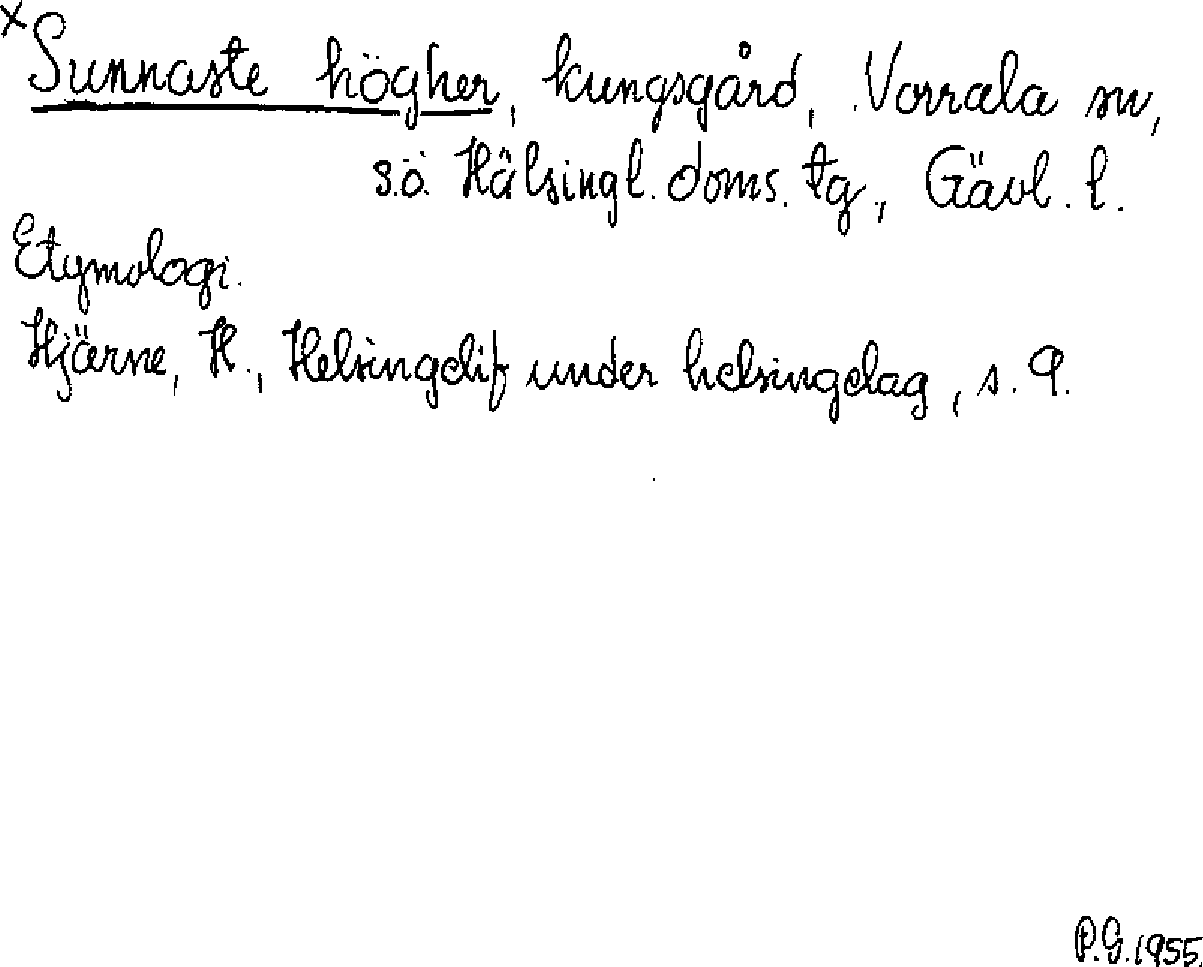 x Sunnaste högher, kungsgård, Norrala sn,
s.ö. Hälsingl. doms. tg., Gävl. l.
Etymologi.
Hjärne, H., Helsingelif under helsingelag, s. 9.
P.G. 1955.